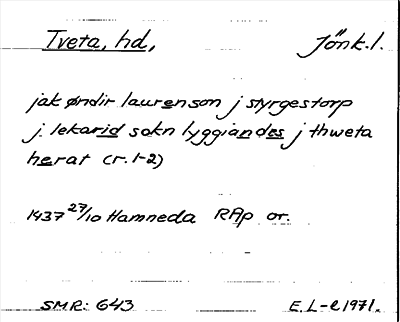 Tveta, hd, Jönk.l.
jak øndir laurenson j styrgestorp
j lekarid sokn lyggiandes j thweta
herat (r. 1-2)
1437 27/10 Hamneda RAp or.
SMR: 643 E.L-l 1971.